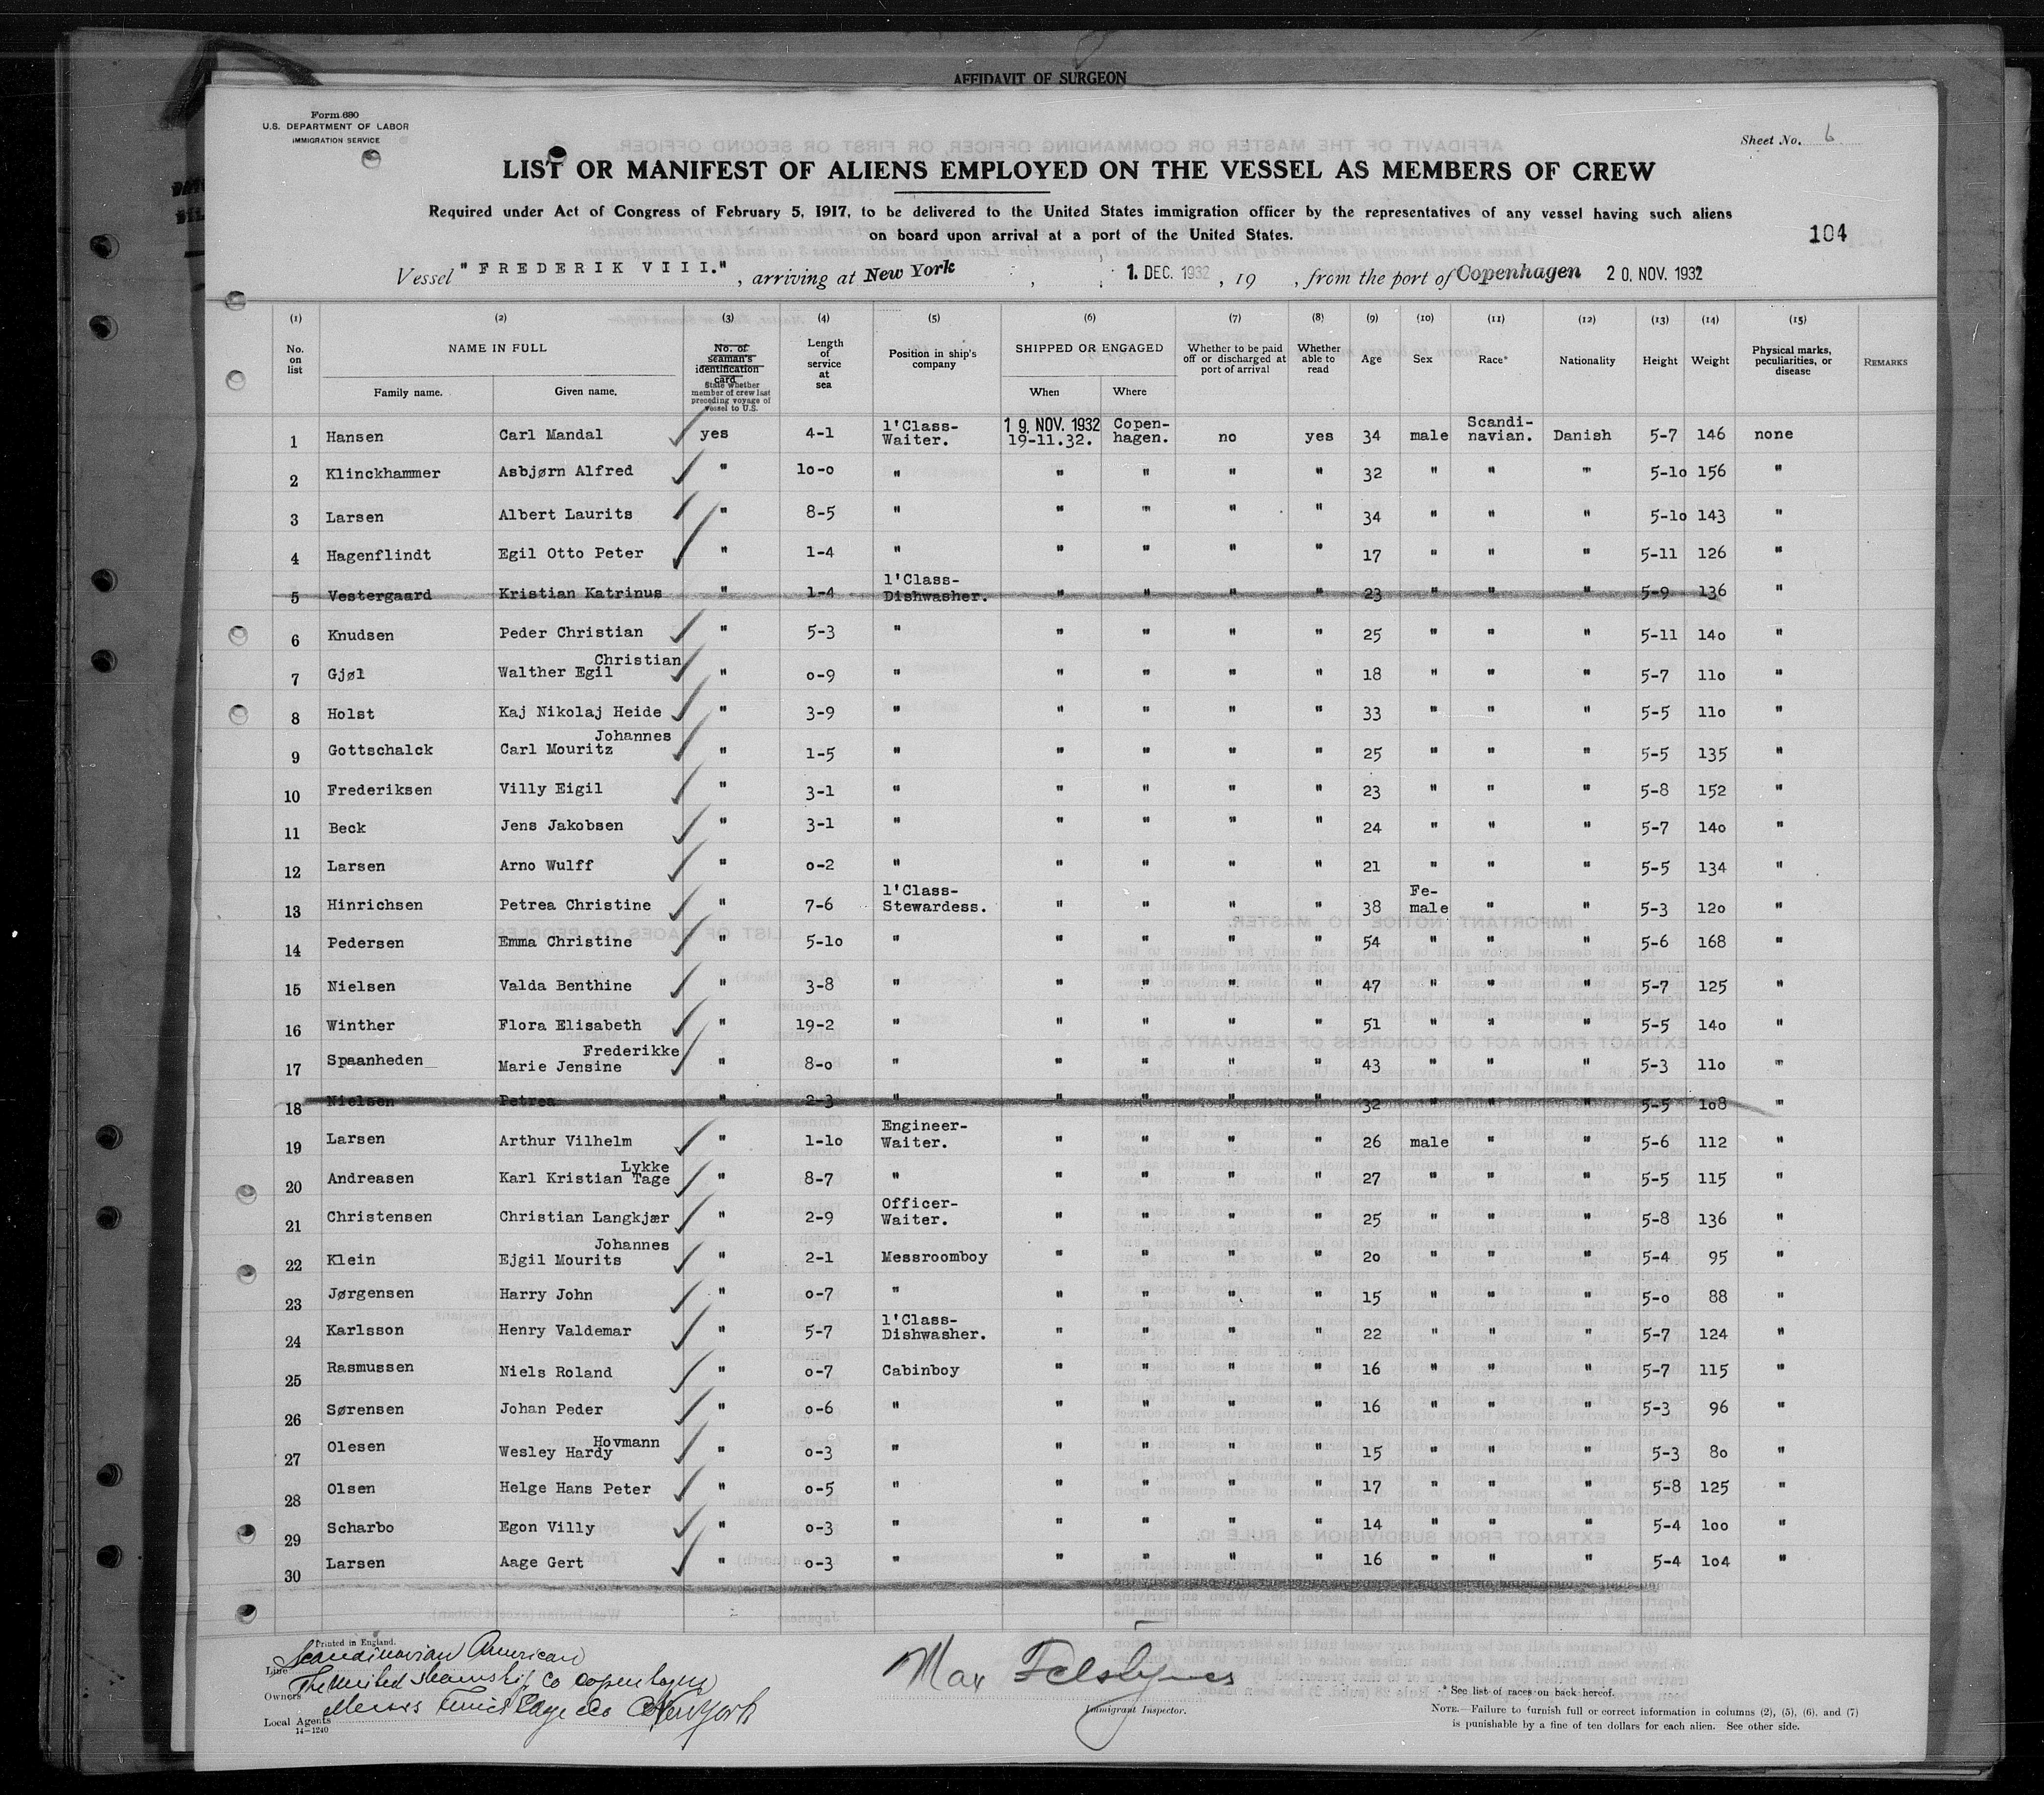 AFFIDAVIT OF SURGEON
Form 680
U.S. DEPARTMENT OF LABOR
IMMIGRATION SERVICE
Sheet No. 6
LIST OR MANIFEST OF ALIENS EMPLOYED ON THE VESSEL AS MEMBERS OF CREW
Required under Act of Congress of February 5, 1917, to be delivered to the United States immigration officer by the representatives of any vessel having such aliens
on board upon arrival at a port of the United States.
104
Vessel "FREDERIK VIII.", arriving at New York, 1. DEC. 1932, 19 , from the port of Copenhagen 20. NOV. 1932
(1) (2) (3) (4) (5) (6) (7) (8) (9) (10) (11) (12) (13) (14) (15)
No. on list NAME IN FULL Family name. Given name. No. of seaman's identification card State whether member of crew last preceding voyage of vessel to U.S. Length of service at sea Position in ship's company SHIPPED OR ENGAGED When Where Whether to be paid off or discharged at port of arrival Whether able to read Age Sex Race* Nationality Height Weight Physical marks, peculiarities, or disease REMARKS
1 Hansen Carl Mandal yes 4-1 1'Class-Waiter. 19. NOV. 1932 19-11.32. Copen-hagen. no yes 34 male Scandi-navian. Danish 5-7 146 none
2 Klinckhammer Asbjørn Alfred " 10-0 " " " " " 32 " " " 5-10 156 "
3 Larsen Albert Laurits " 8-5 " " " " " 34 " " " 5-10 143 "
4 Hagenflindt Egil Otto Peter " 1-4 " " " " " 17 " " " 5-11 126 "
5 Vestergaard Kristian Katrinus " 1-4 1'Class-Dishwasher. " " " " 23 " " " 5-9 136 "
6 Knudsen Peder Christian " 5-3 " " " " " 25 " " " 5-11 140 "
7 Gjøl Walther Egil Christian " 0-9 " " " " " 18 " " " 5-7 110 "
8 Holst Kaj Nikolaj Heide " 3-9 " " " " " 33 " " " 5-5 110 "
9 Gottschalck Carl Mouritz Johannes " 1-5 " " " " " 25 " " " 5-5 135 "
10 Frederiksen Villy Eigil " 3-1 " " " " " 23 " " " 5-8 152 "
11 Beck Jens Jakobsen " 3-1 " " " " " 24 " " " 5-7 140 "
12 Larsen Arno Wulff " 0-2 " " " " " 21 " " " 5-5 134 "
13 Hinrichsen Petrea Christine " 7-6 1'Class-Stewardess. " " " " 38 Fe-male " " 5-3 120 "
14 Pedersen Emma Christine " 5-10 " " " " " 54 " " " 5-6 168 "
15 Nielsen Valda Benthine " 3-8 " " " " " 47 " " " 5-7 125 "
16 Winther Flora Elisabeth " 19-2 " " " " " 51 " " " 5-5 140 "
17 Spaanheden Marie Jensine Frederikke " 8-0 " " " " " 43 " " " 5-3 110 "
18 Nielsen Petrea " 2-3 " " " " " 32 " " " 5-5 108 "
19 Larsen Arthur Vilhelm " 1-10 Engineer-Waiter. " " " " 26 male " " 5-6 112 "
20 Andreasen Karl Kristian Tage Lykke " 8-7 " " " " " 27 " " " 5-5 115 "
21 Christensen Christian Langkjær " 2-9 Officer-Waiter. " " " " 25 " " " 5-8 136 "
22 Klein Ejgil Mourits Johannes " 2-1 Messroomboy " " " " 20 " " " 5-4 95 "
23 Jørgensen Harry John " 0-7 " " " " " 15 " " " 5-0 88 "
24 Karlsson Henry Valdemar " 5-7 1'Class-Dishwasher. " " " " 22 " " " 5-7 124 "
25 Rasmussen Niels Roland " 0-7 Cabinboy " " " " 16 " " " 5-7 115 "
26 Sørensen Johan Peder " 0-6 " " " " " 16 " " " 5-3 96 "
27 Olesen Wesley Hardy Hovmann " 0-3 " " " " " 15 " " " 5-3 80 "
28 Olsen Helge Hans Peter " 0-5 " " " " " 17 " " " 5-8 125 "
29 Scharbo Egon Villy " 0-3 " " " " " 14 " " " 5-4 100 "
30 Larsen Aage Gert " 0-3 " " " " " 16 " " " 5-4 104 "
Printed in England.
Line Scandinavian American
Owners The United Steamship Co Copenhagen
Local Agents New York
14-1240
Max
Immigrant Inspector.
* See list of races on back hereof.
NOTE.—Failure to furnish full or correct information in columns (2), (5), (6), and (7)
is punishable by a fine of ten dollars for each alien. See other side.